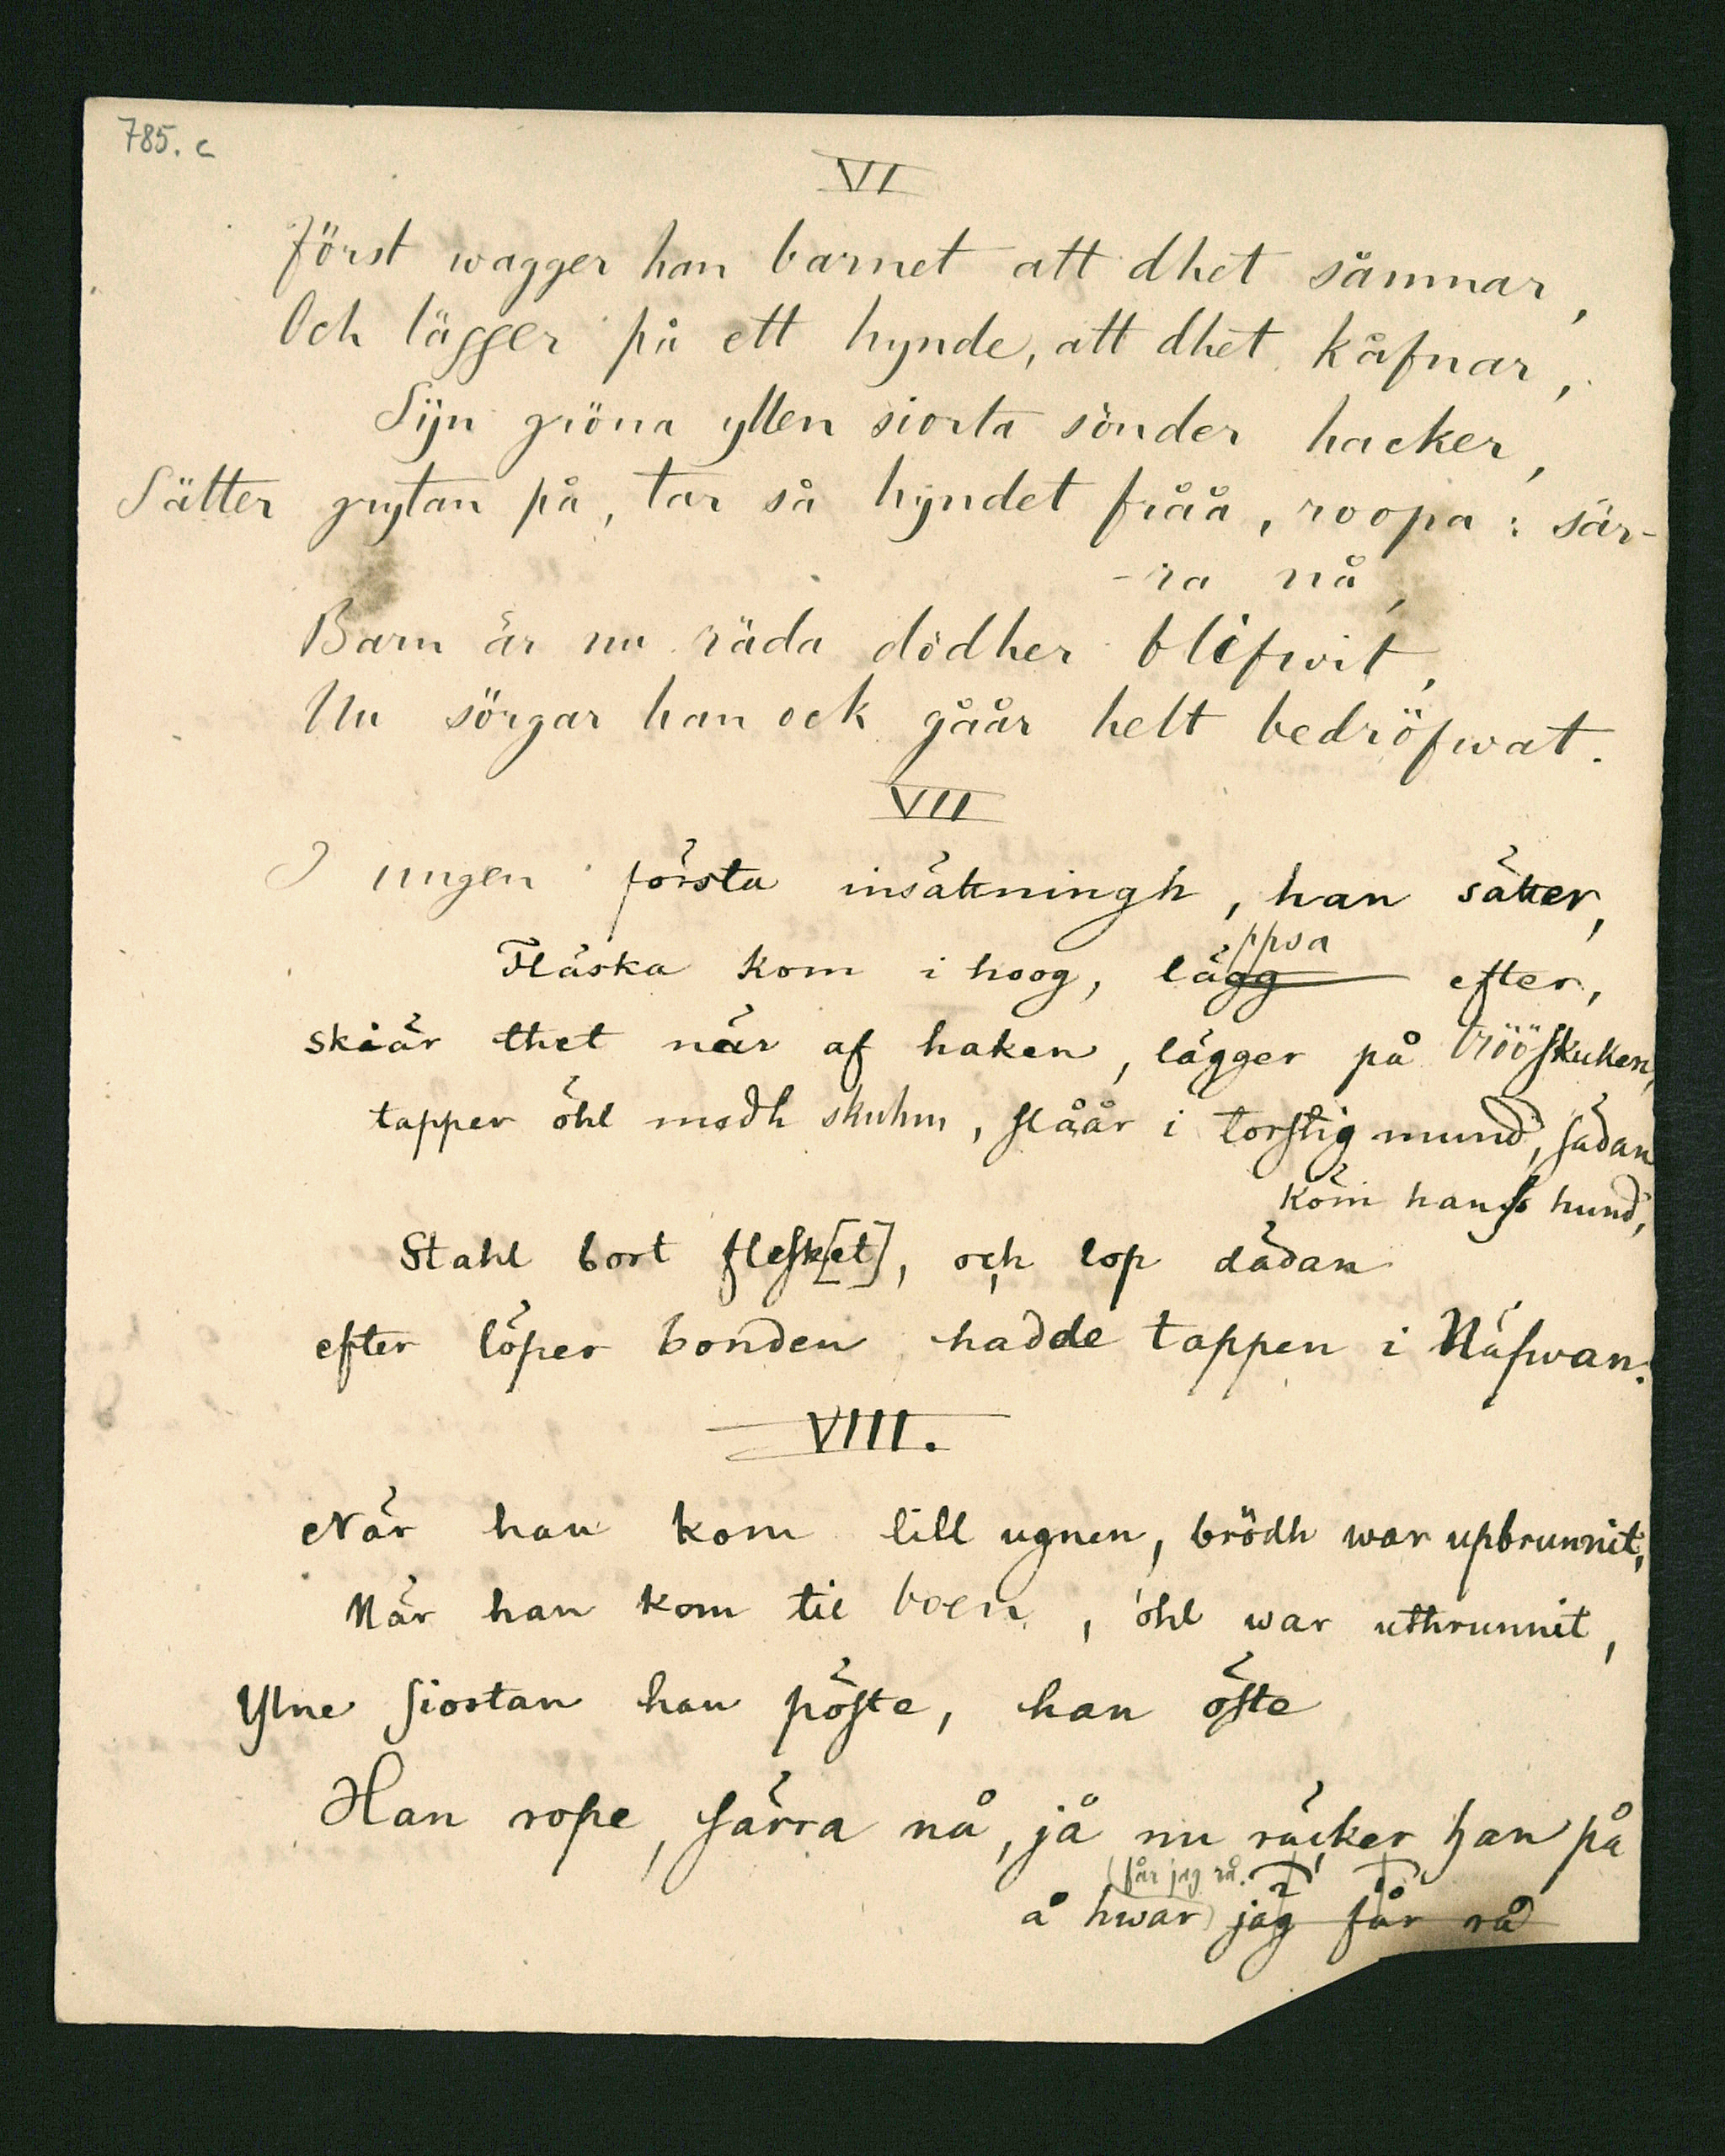 785. c
VI
först wagger han barnet att dhet såmnar,
Och lägger på ett hynde, att dhet kåfnar,
Sijn gröna yllen siorta sönder hacker,
Sätter grytan på, tar så hyndet fråå, roopa: sär-
-ra nå,
Barn är nu räda dödher blifwit,
Nu sörgar han ock gåår helt bedröfwat.
VII
I ungen första insättningh, han sätter,
Fläska kom i hoog, lägg efter,
ppsa
skiär thet när af haken, lägger på brööskuken,
tapper öhl medh skuhm, slåår i torstig mund, sädan
köm hans hund,
Stahl bort flesk[et], och lop dädan
efter löper bonden hadde tappen i Näfwan.
VIII.
När han kom till ugnen, brödh war upbrunnit,
När han kom til boen, öhl war uthrunnit,
Ylne siortan han pöste, han öste
Han rope, särra nå, jå nu räcker han på
(får jag rå.
å hwar) jag får rå